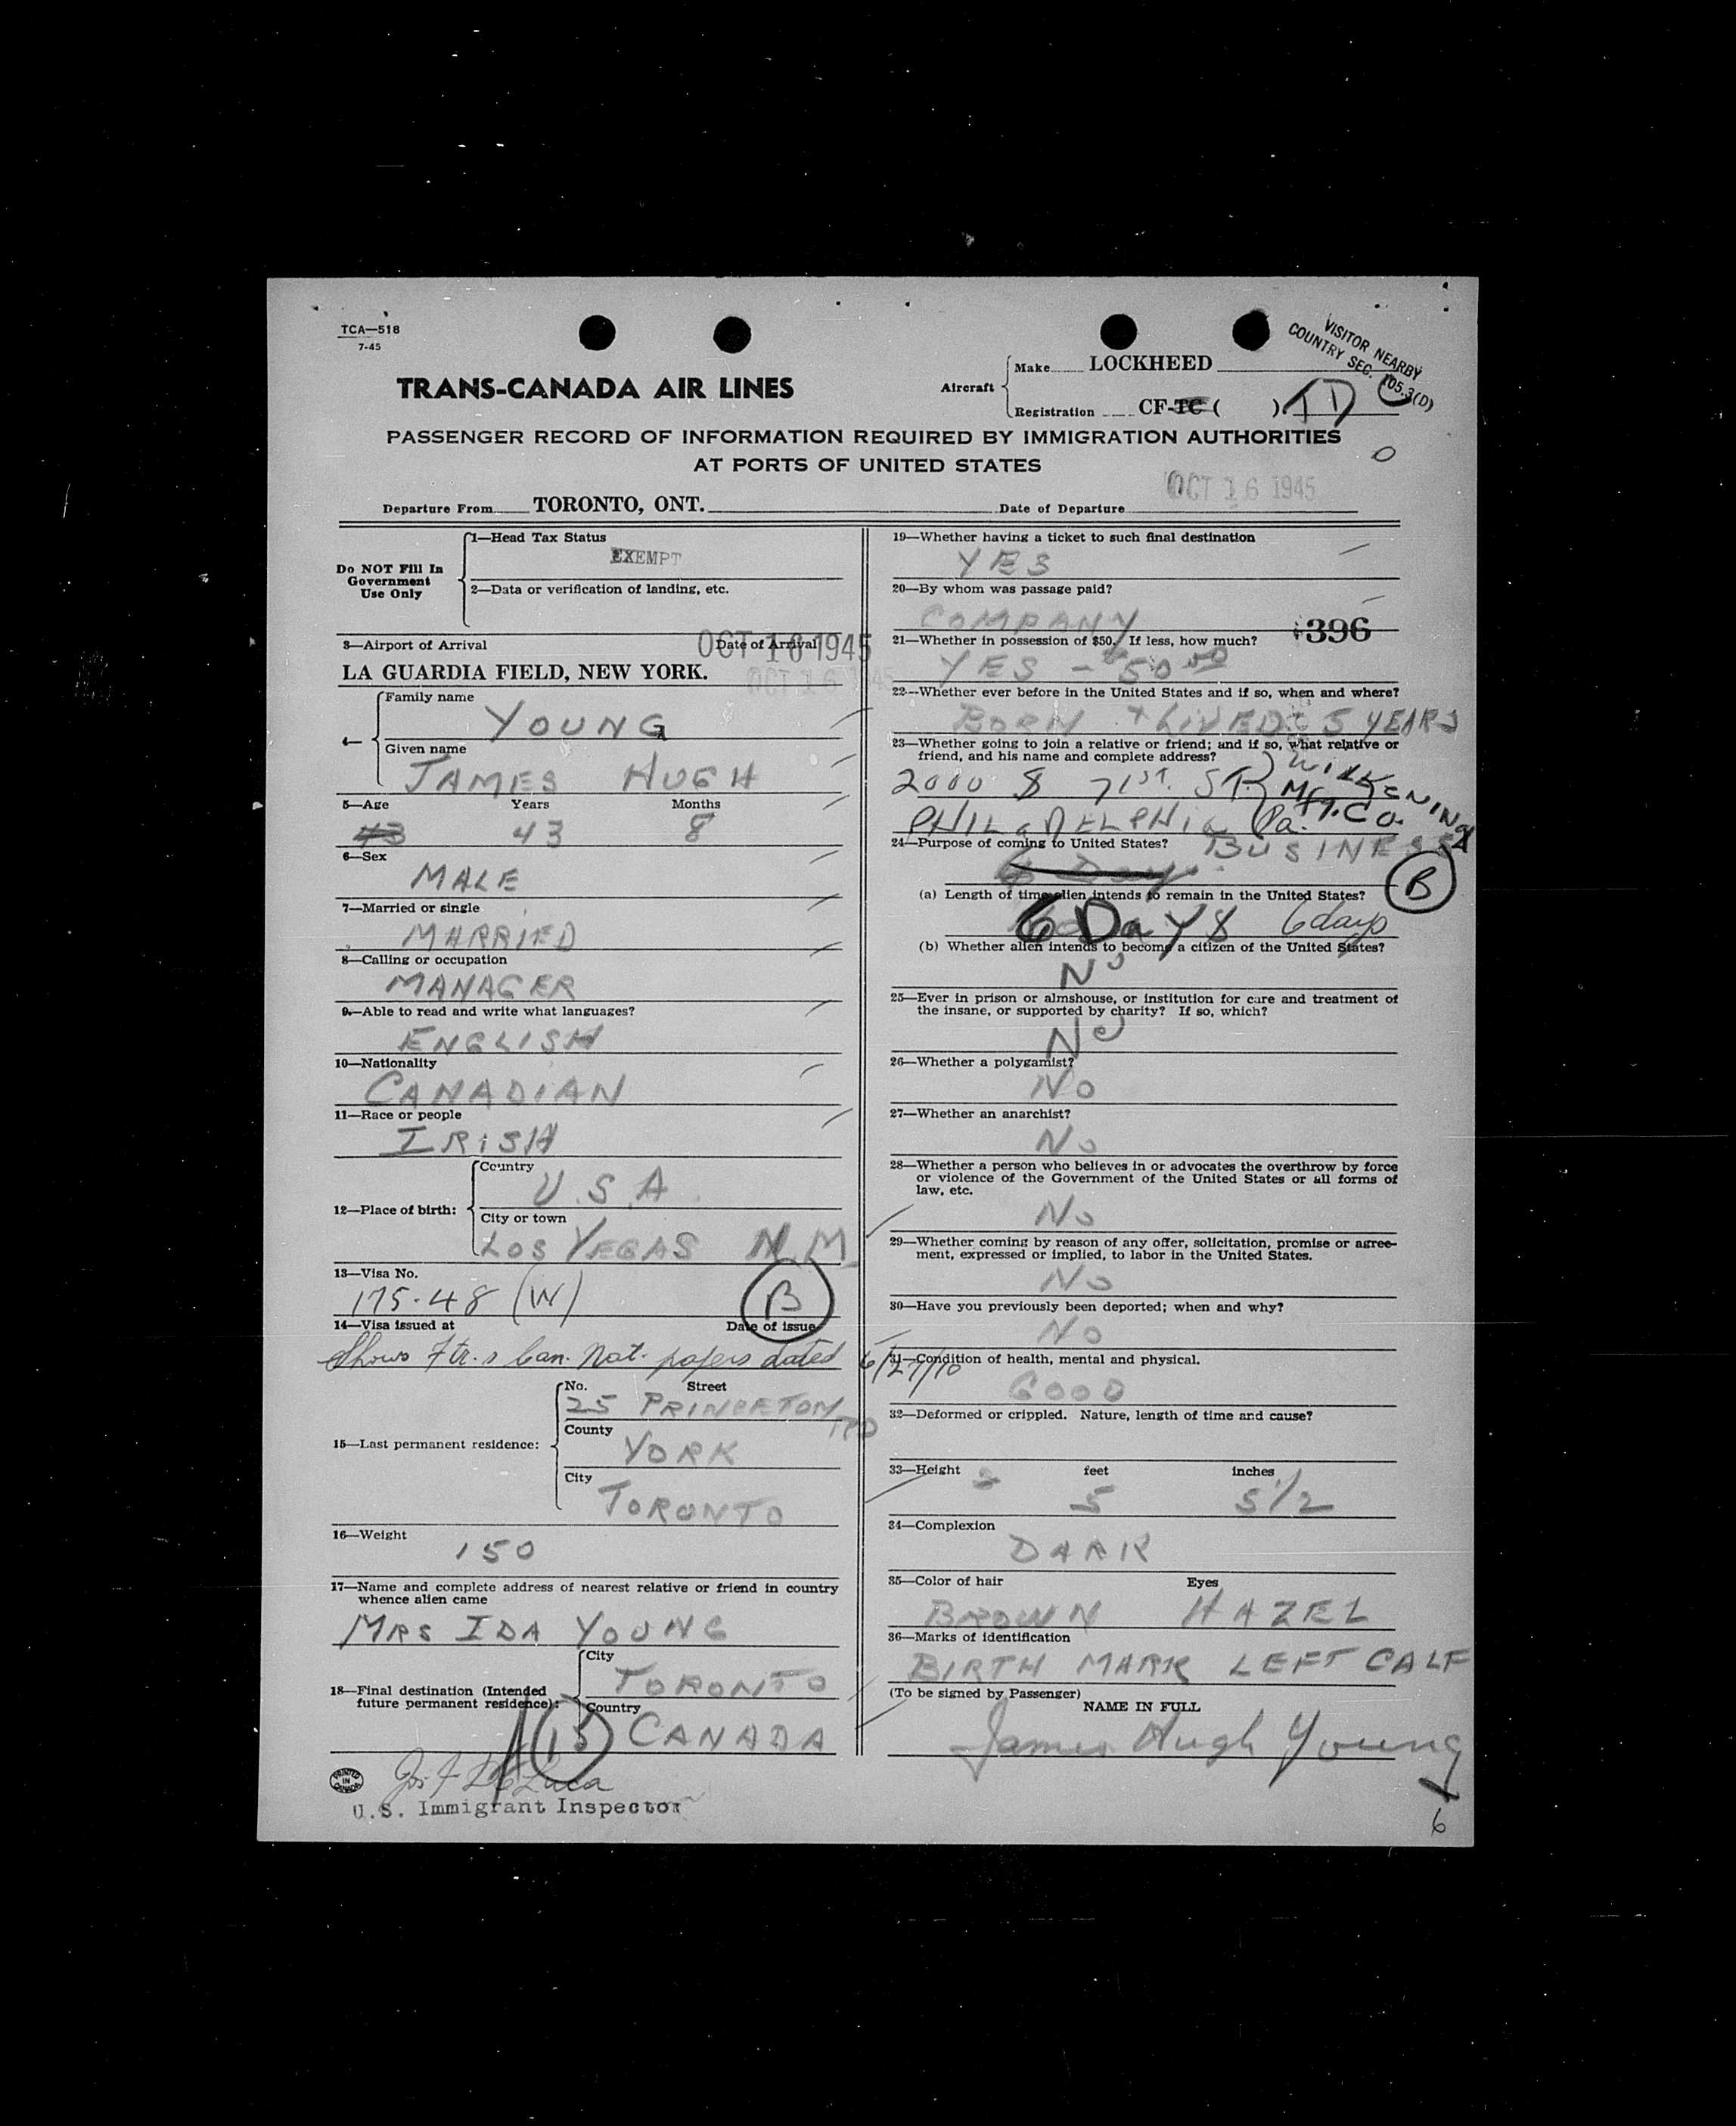 TCA—518
7-45
VISITOR NEARBY
COUNTRY SEC. 105.3(D)
TRANS-CANADA AIR LINES
Aircraft
Make LOCKHEED
Registration CF-TC ( ) TD
PASSENGER RECORD OF INFORMATION REQUIRED BY IMMIGRATION AUTHORITIES
AT PORTS OF UNITED STATES
0
OCT 16 1945
Departure From TORONTO, ONT. Date of Departure
Do NOT Fill In
Government
Use Only
1—Head Tax Status
EXEMPT
2—Data or verification of landing, etc.
3—Airport of Arrival Date of Arrival
OCT 16 1945
LA GUARDIA FIELD, NEW YORK.
OCT 16 1945
4—
Family name
YOUNG
Given name
JAMES HUGH
5—Age Years Months
43 43 8
6—Sex
MALE
7—Married or single
MARRIED
8—Calling or occupation
MANAGER
9—Able to read and write what languages?
ENGLISH
10—Nationality
CANADIAN
11—Race or people
IRISH
12—Place of birth:
Country
U.S.A.
City or town
LOS VEGAS N.M
13—Visa No.
175.48 (W) B
14—Visa issued at Date of issue
Shows Ftr.s Can. Nat. papers dated 6/27/10
15—Last permanent residence:
No. Street
25 PRINCETON RD
County
YORK
City
TORONTO
16—Weight
150
17—Name and complete address of nearest relative or friend in country
whence alien came
MRS IDA YOUNG
18—Final destination (Intended
future permanent residence):
City
TORONTO
Country
(15) CANADA
PRINTED IN CANADA
Jos J De Luca
U.S. Immigrant Inspector
19—Whether having a ticket to such final destination
YES
20—By whom was passage paid?
COMPANY
396
21—Whether in possession of $50. If less, how much?
YES - $50.00
22—Whether ever before in the United States and if so, when and where?
BORN + LIVED 5 YEARS
23—Whether going to join a relative or friend; and if so, what relative or
friend, and his name and complete address?
WILKENING
2000 S 71ST. ST. Mfg. Co.
PHILADELPHIA Pa.
24—Purpose of coming to United States? BUSINESS
6 Days
B
(a) Length of time alien intends to remain in the United States?
6 Days 6 days
(b) Whether alien intends to become a citizen of the United States?
No
25—Ever in prison or almshouse, or institution for care and treatment of
the insane, or supported by charity? If so, which?
No
26—Whether a polygamist?
No
27—Whether an anarchist?
No
28—Whether a person who believes in or advocates the overthrow by force
or violence of the Government of the United States or all forms of
law, etc.
No
29—Whether coming by reason of any offer, solicitation, promise or agree-
ment, expressed or implied, to labor in the United States.
No
30—Have you previously been deported; when and why?
No
31—Condition of health, mental and physical.
GOOD
32—Deformed or crippled. Nature, length of time and cause?
33—Height feet inches
5 5 1/2
34—Complexion
DARK
35—Color of hair Eyes
BROWN HAZEL
36—Marks of identification
BIRTH MARK LEFT CALF
(To be signed by Passenger)
NAME IN FULL
James Hugh Young
6